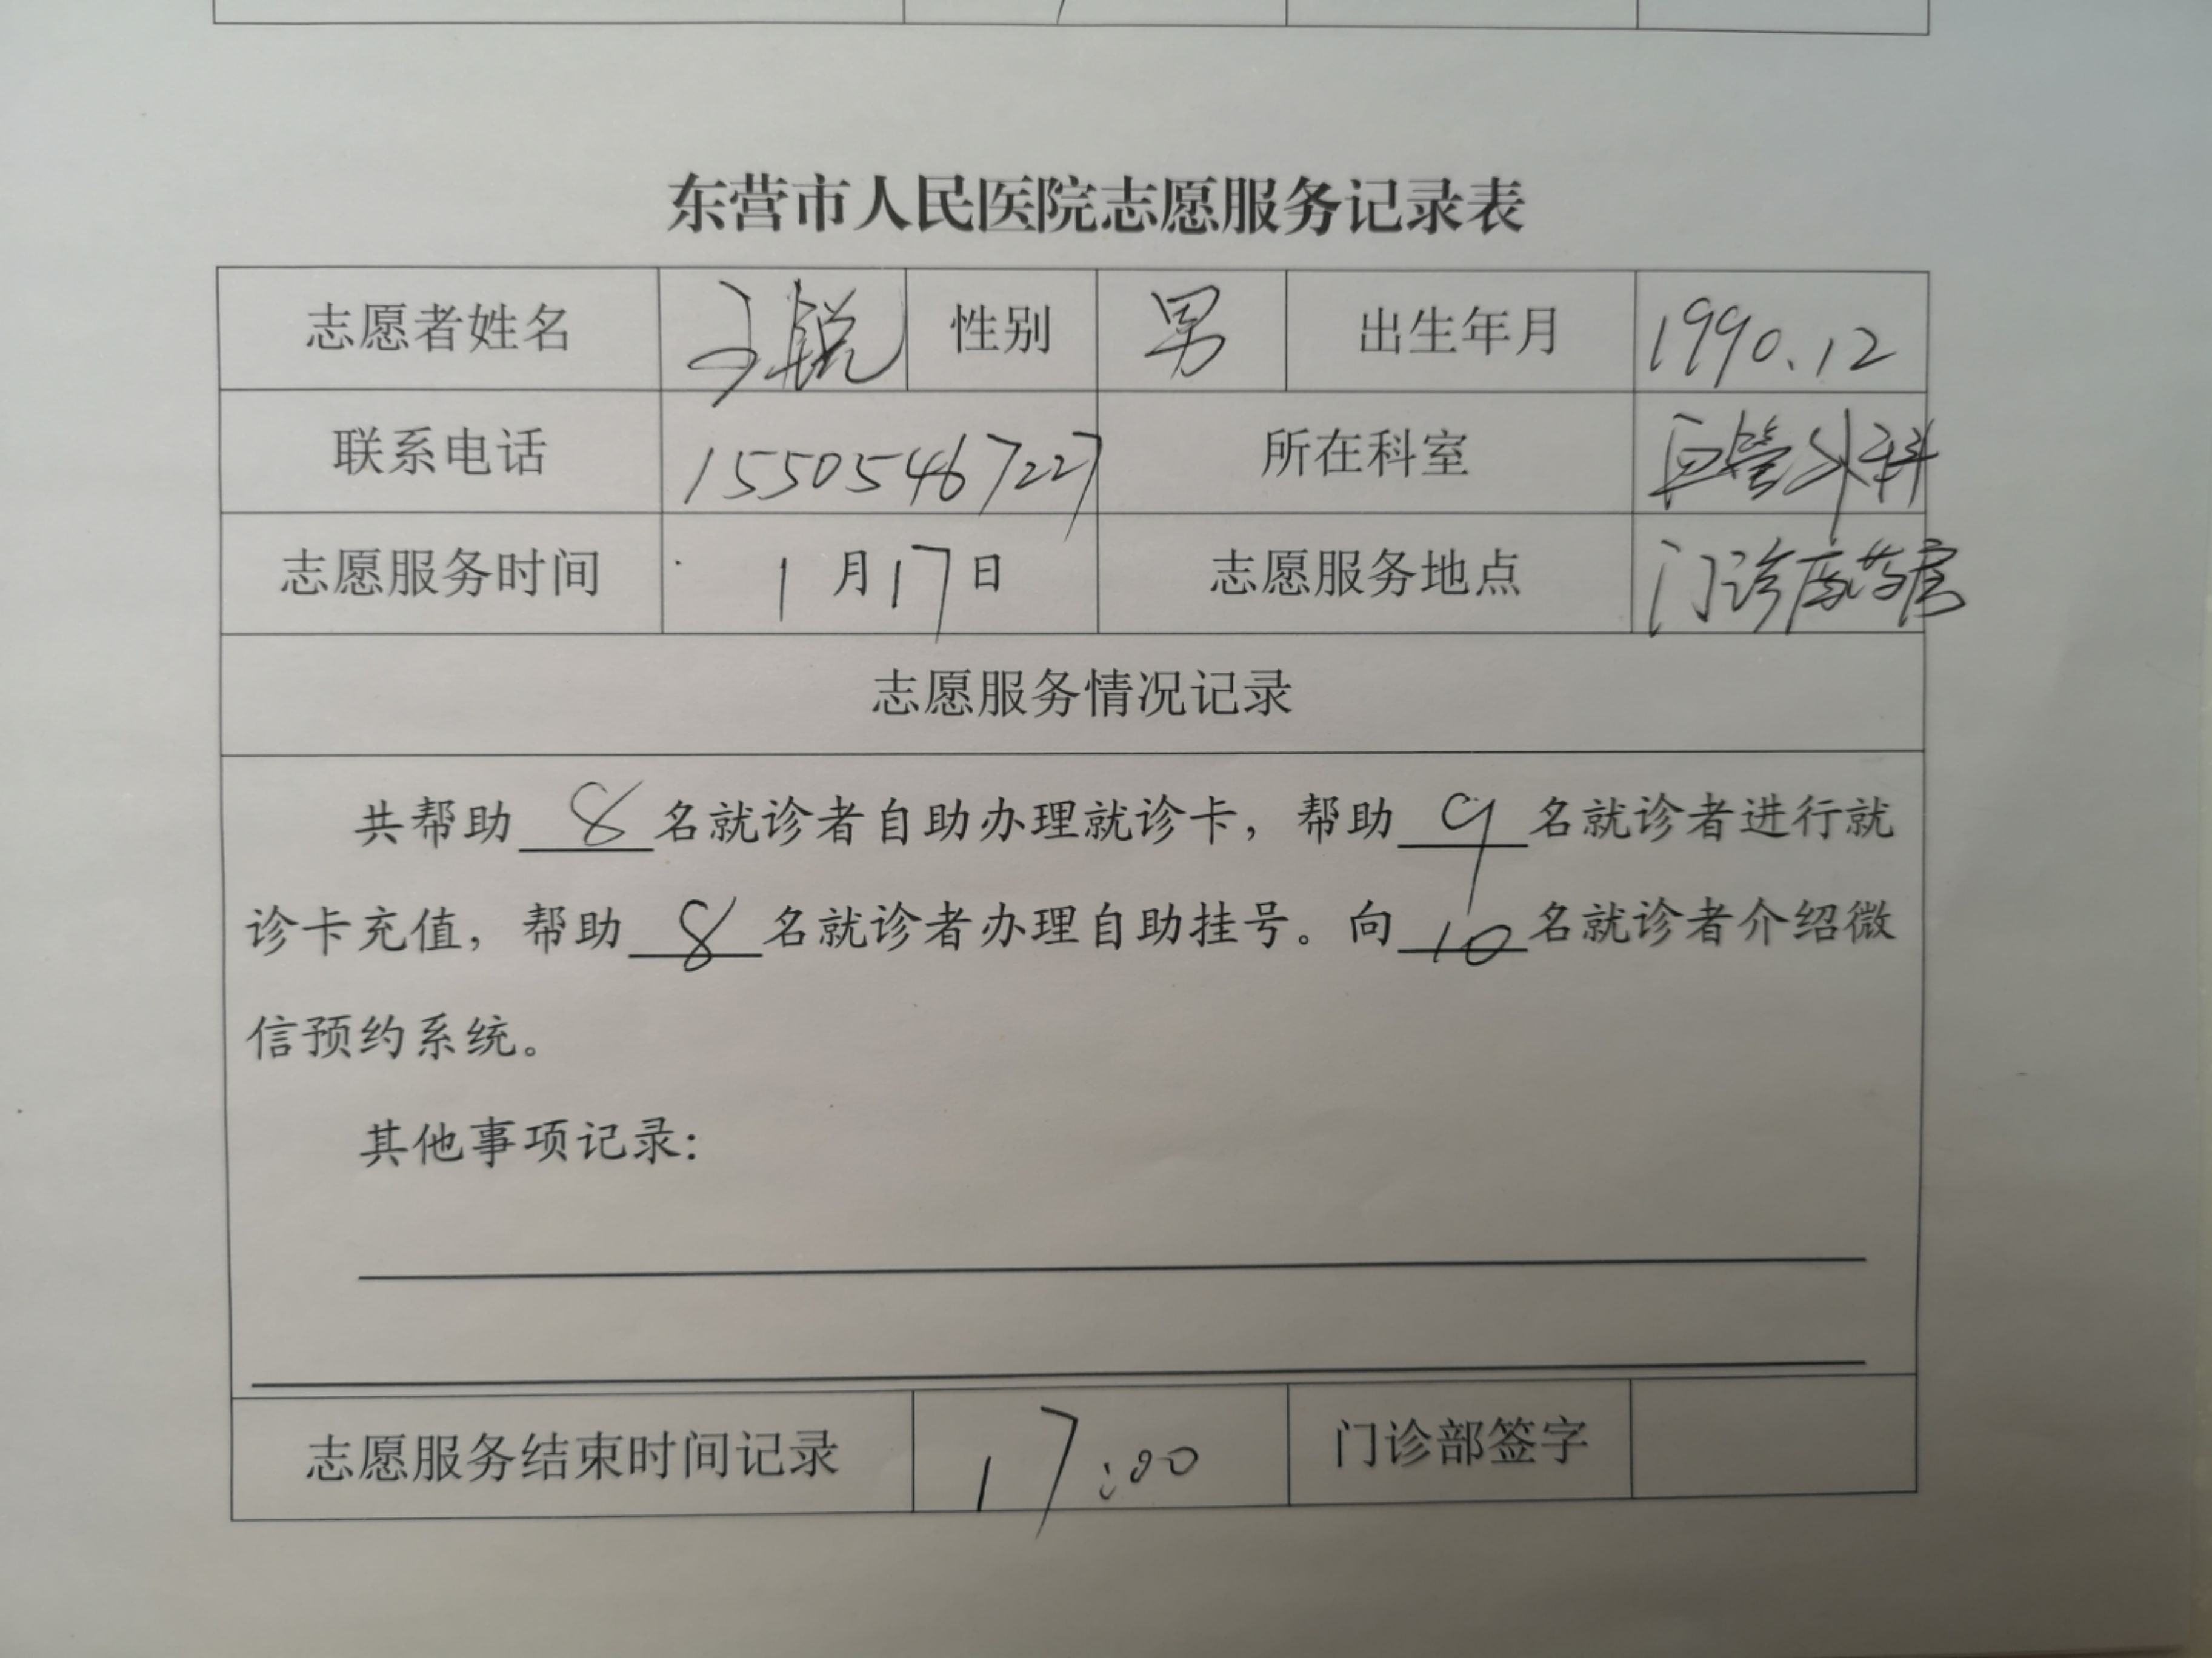 东营市人民医院志愿服务记录表
志愿者姓名 锐 性别 男 出生年月 1990.12
联系电话 15505467227 所在科室 血管外科
志愿服务时间 1月17日 志愿服务地点 门诊 药房
志愿服务情况记录
共帮助 8 名就诊者自助办理就诊卡，帮助 9 名就诊者进行就
诊卡充值，帮助 8 名就诊者办理自助挂号。向 10 名就诊者介绍微
信预约系统。
其他事项记录：
志愿服务结束时间记录 17:00 门诊部签字